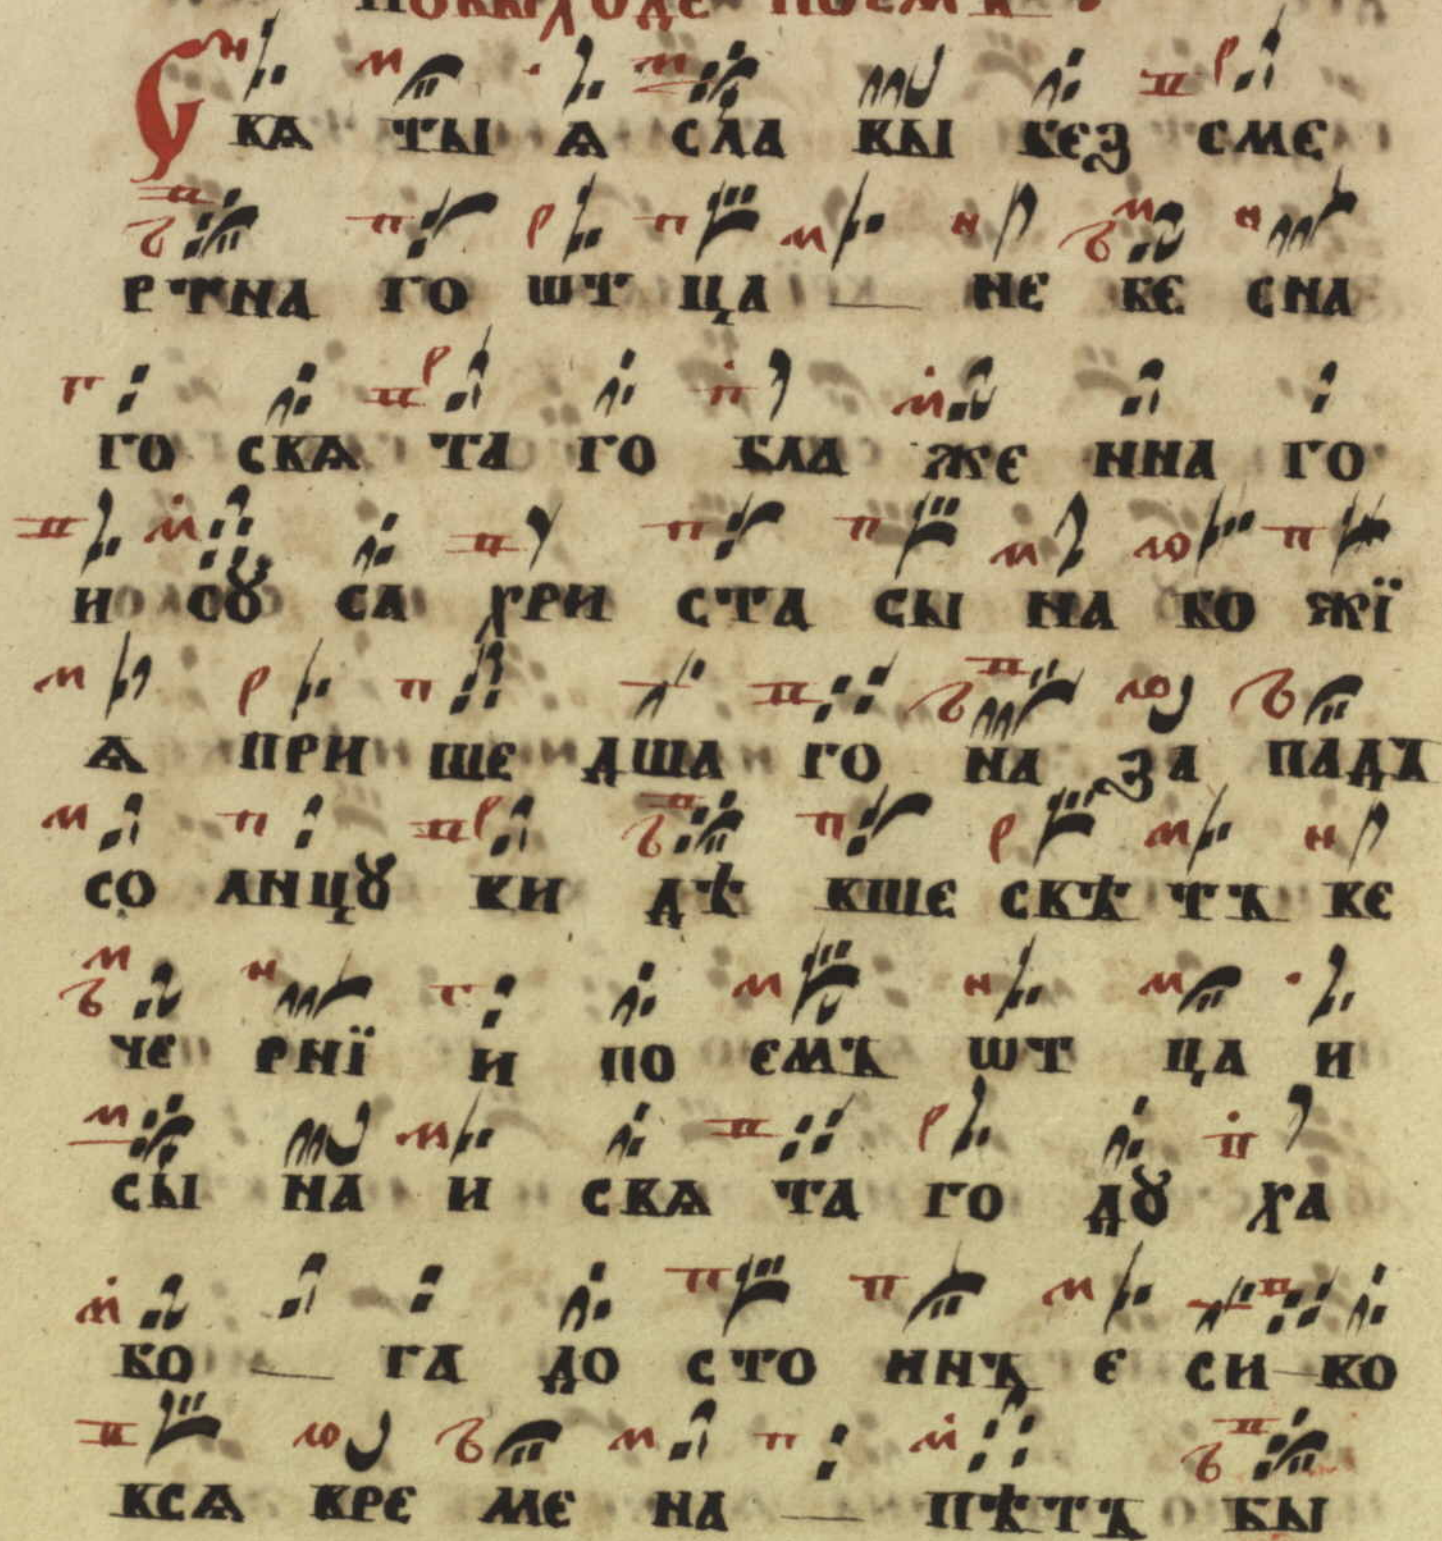 Свя ты я сла вы без сме
ртна го ѡт ца не бе сна
го свя та го бла же нна го
и соу са хри ста сы на бо жї
я при ше дша го на за падъ
со лнцоу ви дѣ вше свѣ тъ ве
че рнї и по емъ ѡт ца и
сы на и свя та го доу ха
бо га до сто инъ е си во
вся вре ме на пѣтъ бы